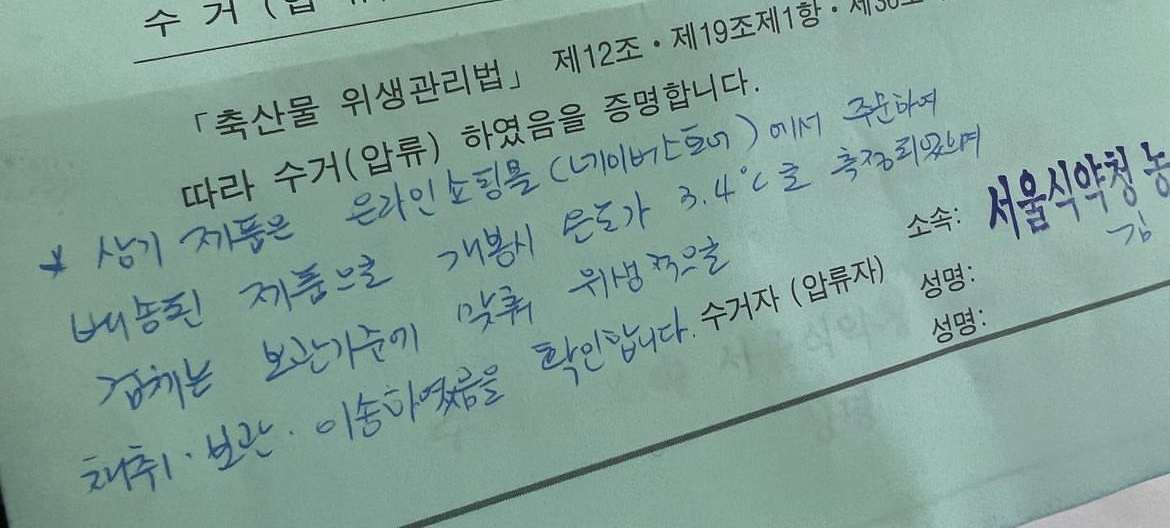 수 거 (압
「축산물 위생관리법」 제12조·제19조제1항·제36조
따라 수거(압류) 하였음을 증명합니다.
* 상기 제품은 온라인쇼핑몰(네이버스토어)에서 주문하여
배송된 제품으로 개봉시 온도가 3.4℃로 측정되었으며
검체는 보관기준에 맞춰 위생적으로
채취·보관·이송하였음을 확인합니다.
소속: 서울식약청 농
김
수거자 (압류자) 성명:
성명: